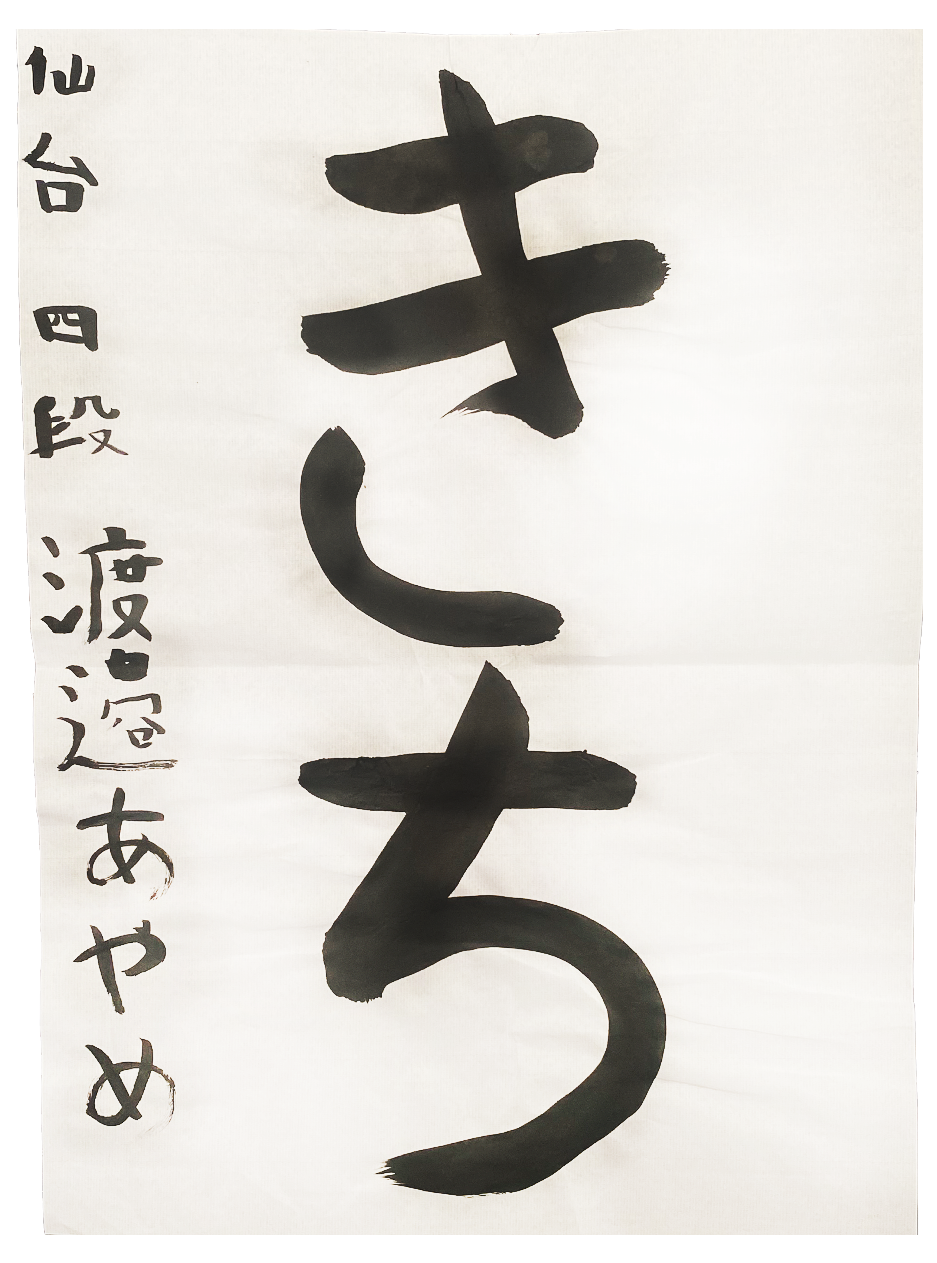 きち
仙台 四段 渡邉あやめ